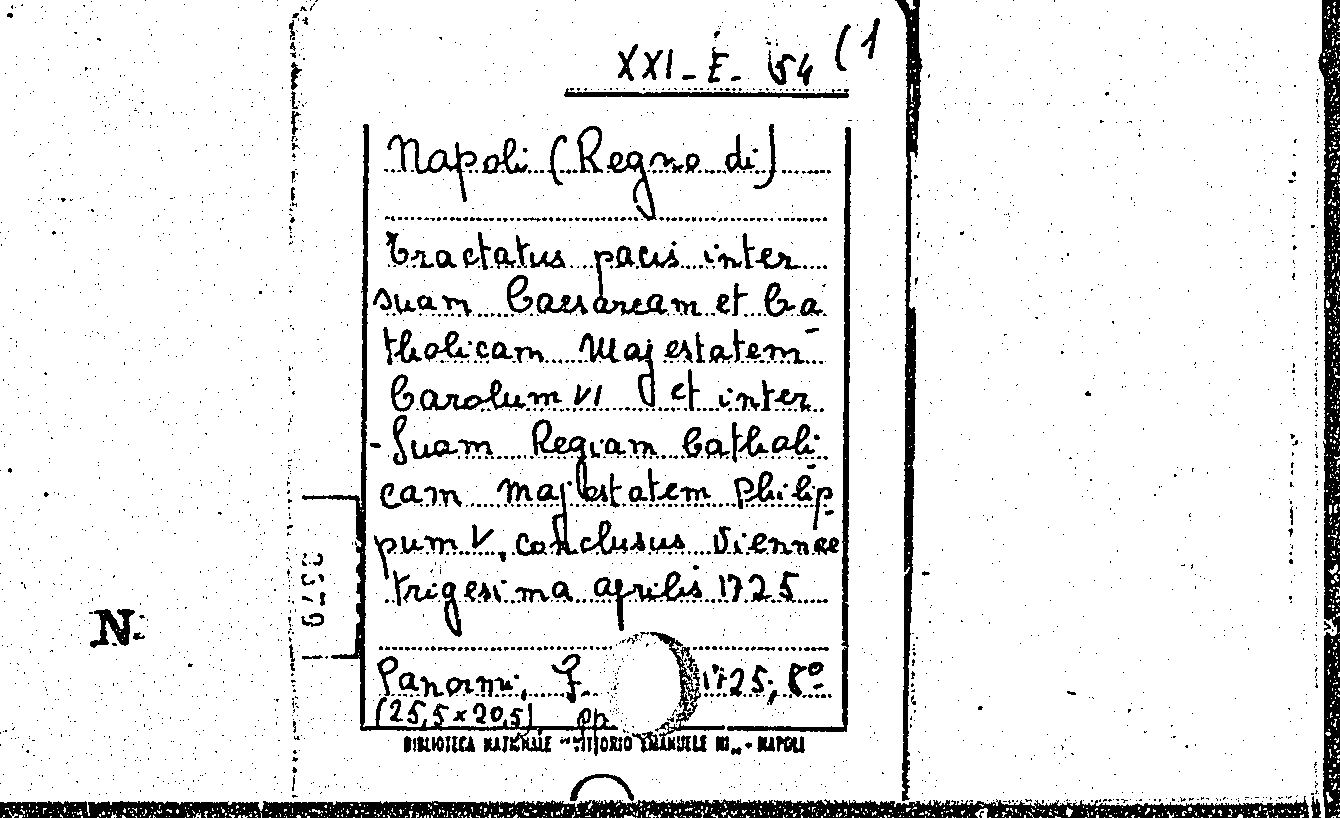 XXI-E- 54 (1
Napoli (Regno di)
Tractatus pacis inter
suam Caesaream et Ca
tholicam Majestatem
Carolum VI et inter
- Suam Regiam Catholi
cam majestatem Philip
pum V, conclusus Viennae
trigesima aprilis 1725
3379
N.
Panormi, F. 1725, 8º
(25,5 x 20,5) pp.
BIBLIOTECA NAZIONALE "VITTORIO EMANUELE III" - NAPOLI